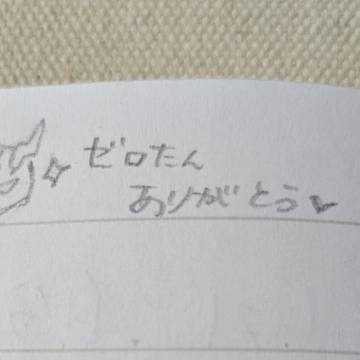 ゼロたん
ありがとう♥